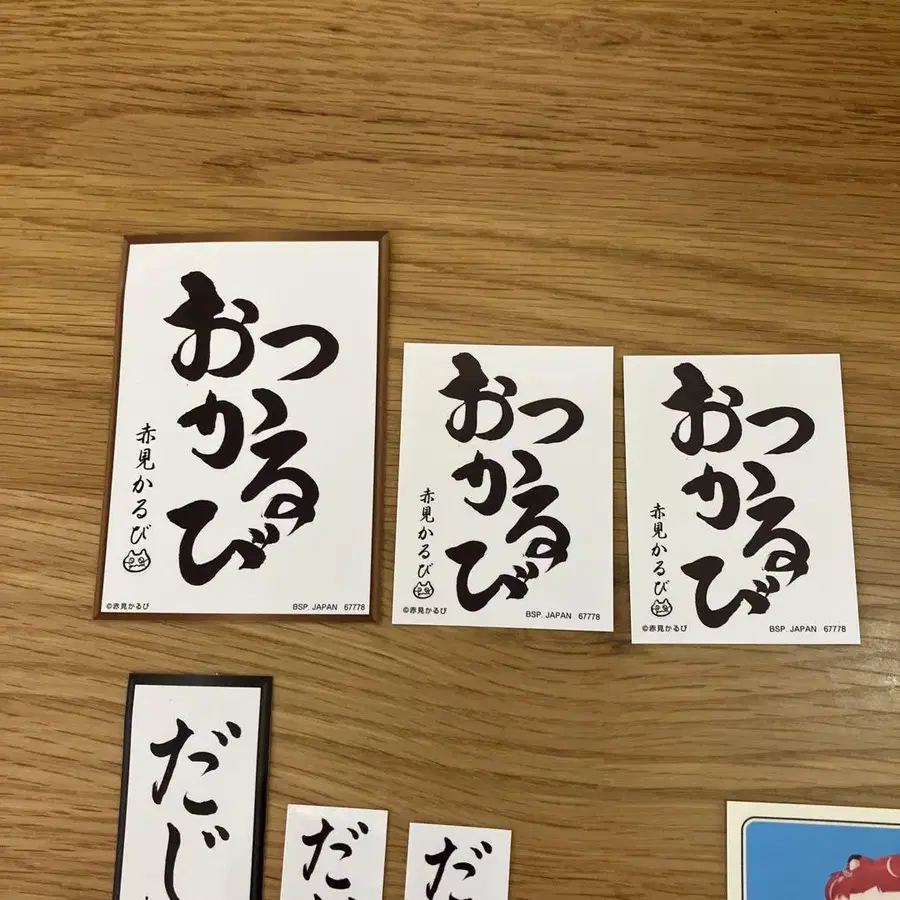 おつ
かる
び
赤見かるび
©赤見かるび
BSP. JAPAN 67778
おつ
かる
び
赤見かるび
©赤見かるび
BSP. JAPAN 67778
おつ
かる
び
赤見かるび
©赤見かるび
BSP. JAPAN 67778
だじ
だ
だ